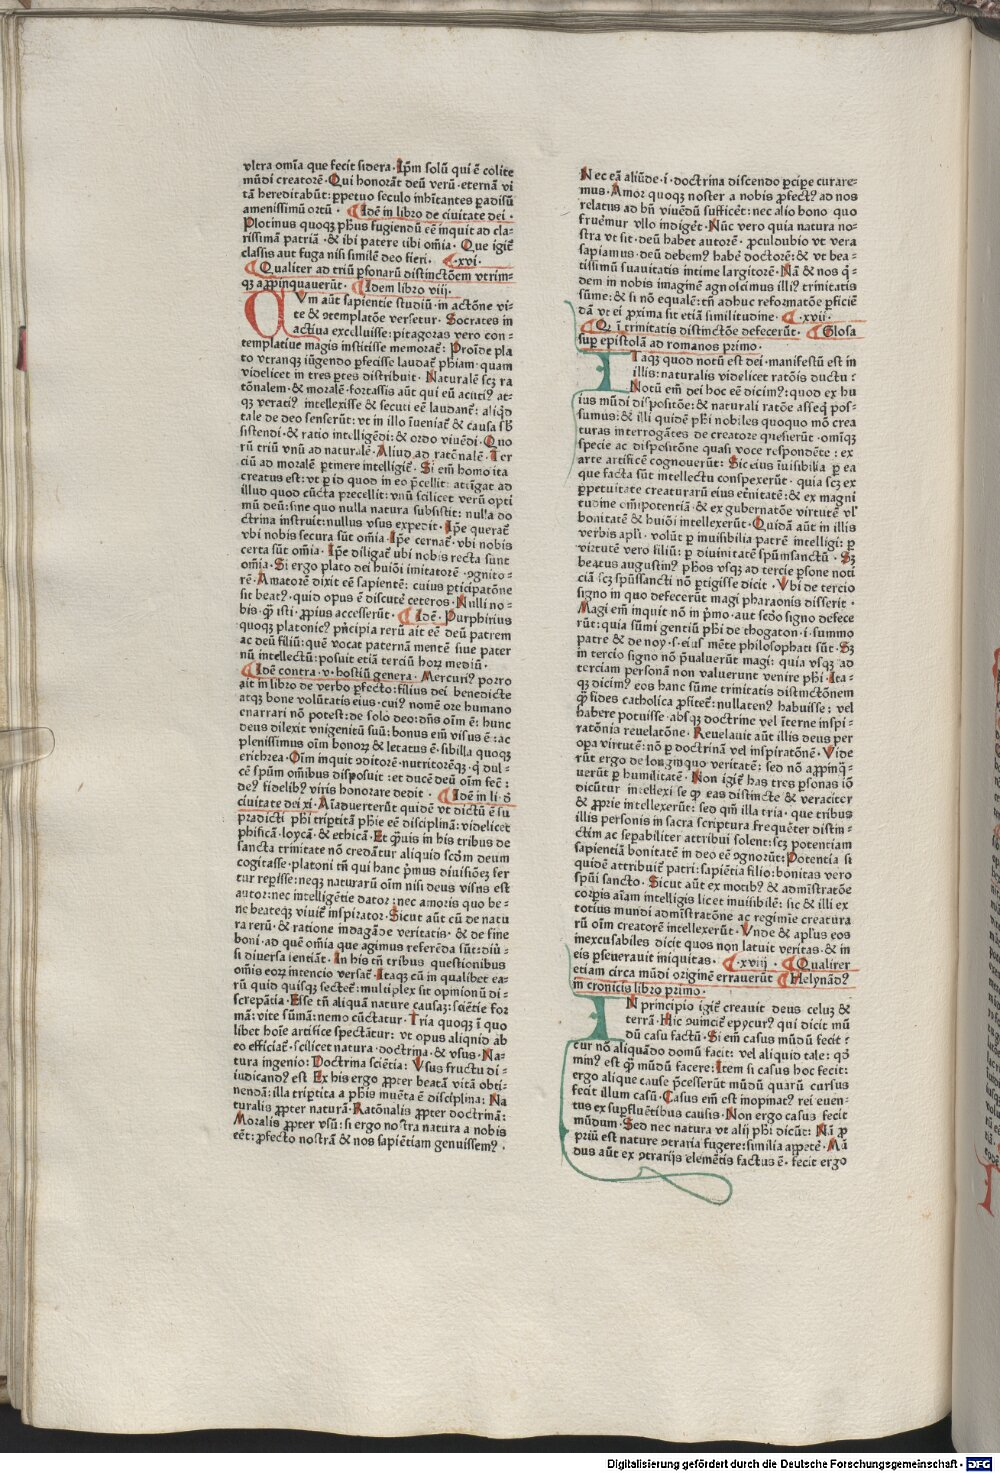 vltra om̄ia que fecit sidera. Ip̄m solū qui ē colite
mūdi creatorē. Qui honorāt deū verū. eternā vi
tā hereditabūt: ꝑpetuo seculo inhītantes ꝑadisū
amenissimū ortū. Idē in libro de ciuitate dei.
Plotinus quoqꝫ ph̄us fugiendū eē inquit ad cla-
rissimā patriā. & ibi patere tibi om̄ia. Que igit̄
classis aut fuga nisi similē deo fieri. .xvi.
Qualiter ad triū ꝑsonarū distinctōem vtrim-
qꝫ aꝓpinquauerūt. Idem libro viij.
CVm aūt sapientie studiū. in actōne vi-
te & ɔtemplatōe versetur. Socrates in
actiua excelluisse: pitagoras vero con-
templatiue magis institisse memorat̄: Proīde pla
to vtranqꝫ iūgendo ꝑfecisse laudat̄ ph̄iam. quam
videlicet in tres ꝑtes distribuit. Naturalē scꝫ ra
tōnalem. & moralē. fortassis aūt qui eū acutiꝰ at-
qꝫ veratiꝰ intellexisse & secuti eē laudant̄: aliqd
tale de deo senserūt: vt in illo īueniat̄ & causa sb̄
sistendi. & ratio intelligēdi: & ordo viuēdi. Quo
rū triū vnū ad naturalē. Aliud ad ratōnalē. Ter
ciū ad moralē ꝑtinere intelligit̄. Si em̄ homo ita
creatus est: vt ꝑ id quod in eo p̄cellit: attīgat ad
illud quod cūcta precellit: vnū scilicet verū opti
mū deū: sine quo nulla natura subsistit: nulla do
ctrina instruit: nullus vsus expedit. Ip̄e querat̄
vbi nobis secura sūt om̄ia. Ip̄e cernat̄. vbi nobis
certa sūt om̄ia. Ip̄e diligat̄ ubi nobis recta sunt
om̄ia. Si ergo plato dei huiōi imitatorē. ɔgnito-
rē. Amatorē dixit eē sapientē: cuius ꝑticipatōne
sit beatꝰ. quid opus ē discutē ceteros. Nulli no-
bis. qͣ isti. ꝓpius accesserūt. Idē. Purphirius
quoqꝫ platonicꝰ p̄ncipia rerū ait eē deū patrem
ac deū filiū: quē vocat paternā mentē siue pater
nū intellectū: posuit etiā terciū horꝝ mediū.
Idē contra .v. hostiū genera. Mercuriꝰ porro
ait in libro de verbo ꝑfecto: filius dei benedicte
atqꝫ bone volūtatis eius. cuiꝰ nomē ore humano
enarrari nō potest: de solo deo: dn̄s oīm ē: hunc
deus dilexit vnigenitū suū: bonus em̄ visus ē: ac
plenissimus oīm bonoꝝ & letatus ē. sibilla quoqꝫ
erichrea. Oīm inquit ɔditorē. nutritorēqꝫ. q̄ dul-
cē spūm om̄ibus disposuit: et ducē deū oīm fec̄:
deꝰ fidelibꝰ viris honorare dedit. Idē in li. d̄
ciuitate dei xi. Aīaduerterūt quidē vt dictū ē su
pradicti ph̄i triptitā ph̄ie eē disciplinā: videlicet
ꝑhificā. loycā. & ethicā. Et qͣuis in his tribus de
sancta trinitate nō credātur aliquid scdm̄ deum
cogitasse. platoni tn̄ qui hanc p̄mus diuisiōeꝫ ser
tur reꝑisse: neqꝫ naturarū oīm nisi deus visus est
autor: nec intelligētie dator: nec amoris quo be-
ne beateqꝫ viuit̄ inspirator. Sicut aūt cū de natu
ra rerū. & ratione indagāde veritatis. & de fine
boni. ad quē om̄ia que agimus referēda sūt: diū-
si diuersa sentiāt. In his tn̄ tribus questionibus
om̄is eoꝝ intencio versat̄. Itaqꝫ cū in qualibet ea-
rū quid quisqꝫ sectet̄: multiplex sit opinionū di-
screpātia. Esse tn̄ aliquā nature causaꝫ: sciētie for
mā: vite sūmā: nemo cūctatur. Tria quoqꝫ ī quo
libet hoīe artifice spectātur: vt opus aliquid ab
eo efficiat̄. scilicet natura. doctrina. & vsus. Na-
tura ingenio: Doctrina sciētia: Vsus fructu di-
iudicandꝰ est. Ex his ergo ꝓpter beatā vitā obti-
nendā: illa triptita a ph̄is inuēta ē disciplina: Na
turalis ꝓpter naturā. Ratōnalis ꝓpter doctrinā:
Moralis ꝓpter vsū: si ergo nostra natura a nobis
eēt: ꝑfecto nostrā & nos sapiētiam genuissemꝰ.
Nec eā aliūde. i. doctrina discendo ꝑcipe curare-
mus. Amor quoqꝫ noster a nobis ꝓfectꝰ ad nos
relatus ad bn̄ viuēdū sufficēt: nec alio bono quo
fruēmur vllo indiget̄. Nūc vero quia natura no-
stra vt sit. deū habet autorē. ꝓculdubio vt vera
sapiamus. deū debemꝰ habē doctorē: & vt bea-
tissimū suauitatis intime largitorē. Nā & nos q̄-
dem in nobis imaginē agnoscimus illiꝰ trinitatis
sūme: & si nō equalē: tn̄ adhuc reformatōe ꝑficiē
dā vt ei ꝓxima sit etiā similitudine. .xvii.
Qꝫ ī trinitatis distinctōe defecerūt. Glosa
suꝑ epistolā ad romanos primo.
ITaqꝫ quod notū est dei. manifestū est in
illis: naturalis videlicet ratōis ductu:
Notū em̄ dei hoc eē dicimꝰ: quod ex hu
ius mūdi dispositōe: & naturali ratōe asseq̄ pos-
sumus: & illi quidē ph̄i nobiles quoquo mō crea
turas interrogātes de creatore quesierūt. om̄iqꝫ
specie ac dispositōne quasi voce respondēte: ex
arte artificē cognouerūt: Sic eius īuisibilia ꝑ ea
que facta sūt intellectu conspexerūt. quia scꝫ ex
ꝑpetuitate creaturarū eius et̄nitatē: & ex magni
tudine om̄ipotentiā. & ex gubernatōe virtutē vl̄
bonitatē & huiōi intellexerūt. Quidā aūt in illis
verbis apl̄i. volūt ꝑ inuisibilia patrē intelligi: ꝑ
virtutē vero filiū: ꝑ diuinitatē spūmsanctū. Sꝫ
beatus augustinꝰ ph̄os vsqꝫ ad tercie ꝑsone noti
ciā scꝫ spūssancti nō ꝑtigisse dicit. Vbi de tercio
signo in quo defecerūt magi pharaonis disserit.
Magi em̄ inquit nō in p̄mo. aut scdo signo defece
rūt: quia sūmi gentiū ph̄i de thogaton. i. summo
patre & de noy. s. eiꝰ mēte philosophati sūt. Sꝫ
in tercio signo nō p̄ualuerūt magi: quia vsqꝫ ad
terciam ꝑsonā non valuerunt venire ph̄i. Ita-
qꝫ dicimꝰ eos hanc sūme trinitatis distinctōnem
qͣ fides catholica ꝓfitet̄: nullatenꝰ habuisse: vel
habere potuisse. absqꝫ doctrine vel īterne inspi-
ratōnia reuelatōne. Reuelauit aūt illis deus per
oꝑa virtutē: nō ꝑ doctrinā vel inspiratōnē. Vide
rūt ergo de longinquo veritatē: sed nō aꝓpinq̄-
uerūt ꝑ humilitatē. Non igit̄ has tres ꝑsonas iō
dicūtur intellexisse qͣ eas distincte & veraciter
& ꝓprie intellexerūt: sed qm̄ illa tria. que tribus
illis personis in sacra scriptura frequēter distin-
ctim ac seꝑabiliter attribui solent: scꝫ potentiam
sapientiā bonitatē in deo eē ɔgnorūt: Potentia si
quidē attribuit̄ patri: sapiētia filio: bonitas vero
spūi sancto. Sicut aūt ex motibꝰ & admīstratōe
corꝑis aīam intelligis licet inuisibilē: sic & illi ex
totius mundi admīstratōne ac regimīe creatura
rū oīm creatorē intellexerūt. Vnde & apl̄us eos
inexcusabiles dicit quos non latuit veritas. & in
eis ꝑseuerauit iniquitas. .xviij. Qualirer
etiam circa mūdi originē errauerūt Helynādꝰ
in cronicis libro primo.
IN principio igit̄ creauit deus celuꝫ &
terrā. Hic ɔuincit̄ epycurꝰ qui dicit mū
dū casu factū. Si em̄ casus mūdū fecit:
cur nō aliquādo domū facit: vel aliquid tale: qd̄
minꝰ est qͣ mūdū facere: Item si casus hoc fecit:
ergo alique cause p̄cesserūt mūdū quarū cursus
fecit illum casū. Casus em̄ est inopinatꝰ rei euen-
tus ex suꝑfluētibus causis. Non ergo casus fecit
mūdum. Sed nec natura vt alij ph̄i dicūt: Nā ꝓ
priū est nature ɔtraria fugere: similia appetē. Mū
dus aūt ex ɔtrarijs elemētis factus ē. fecit ergo
Digitalisierung gefördert durch die Deutsche Forschungsgemeinschaft - DFG